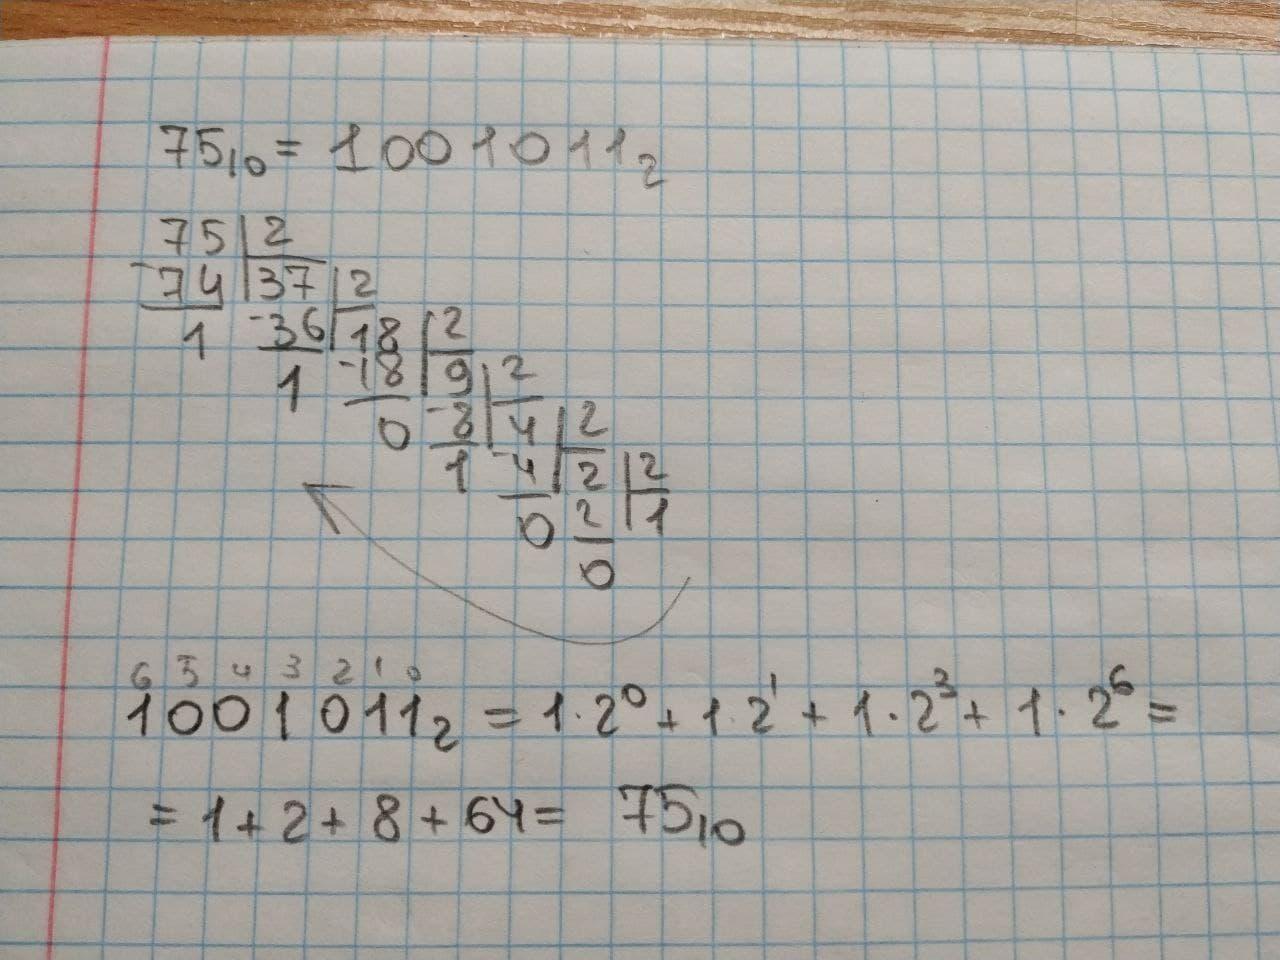 75₁₀ = 1001011₂
75 | 2
-74 | 37 | 2
1 -36 | 18 | 2
1 -18 | 9 | 2
0 -8 | 4 | 2
1 -4 | 2 | 2
0 2 | 1
0
6 5 4 3 2 1 0
1001011₂ = 1·2⁰ + 1·2¹ + 1·2³ + 1·2⁶ =
= 1 + 2 + 8 + 64 = 75₁₀